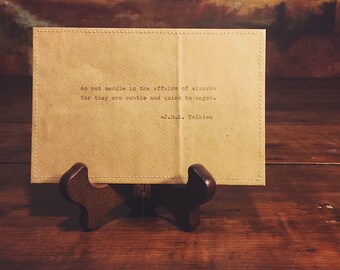 do not meddle in the affairs of wizards
for they are subtle and quick to anger.
-J.R.R. Tolkien